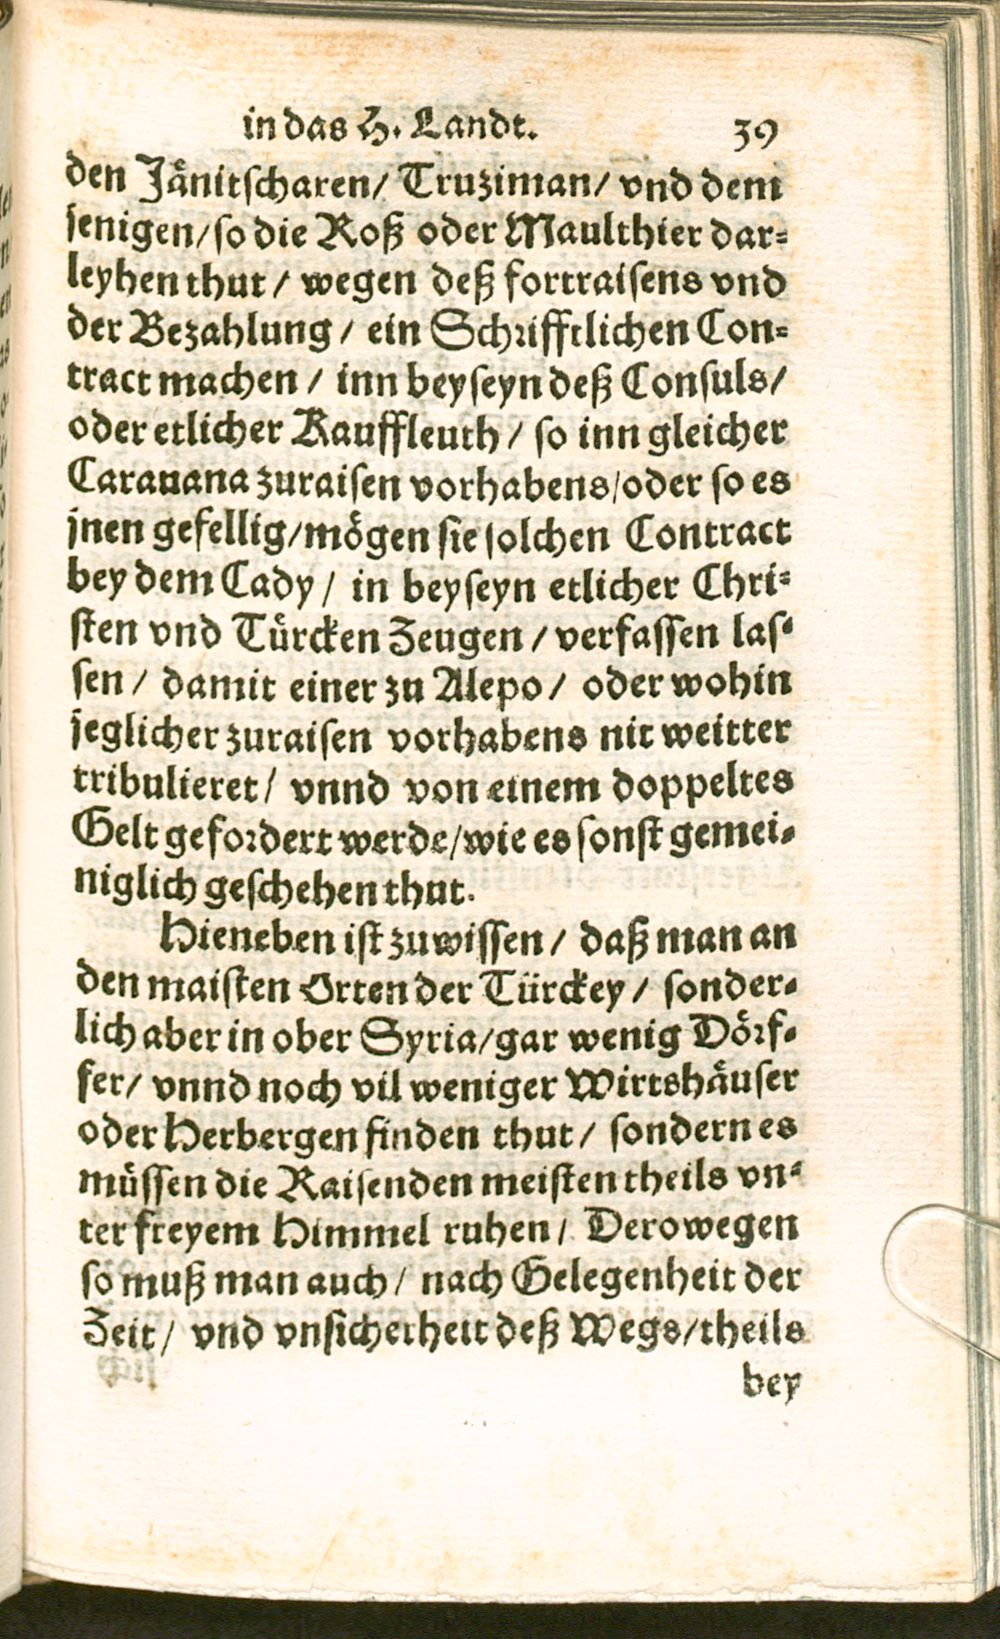 in das H. Landt. 39
den Jänitscharen/ Truziman/ vnd dem
jenigen/ so die Roß oder Maulthier dar=
leyhen thut / wegen deß fortraisens vnd
der Bezahlung / ein Schrifftlichen Con=
tract machen / inn beyseyn deß Consuls/
oder etlicher Kauffleuth / so inn gleicher
Carauana zuraisen vorhabens/oder so es
jnen gefellig/mögen sie solchen Contract
bey dem Cady / in beyseyn etlicher Chri=
sten vnd Türcken Zeugen / verfassen las=
sen / damit einer zu Alepo / oder wohin
jeglicher zuraisen vorhabens nit weitter
tribulieret/ vnnd von einem doppeltes
Gelt gefordert werde/wie es sonst gemei=
niglich geschehen thut.
Hieneben ist zuwissen / daß man an
den maisten Orten der Türckey / sonder=
lich aber in ober Syria/gar wenig Dörf=
fer/ vnnd noch vil weniger Wirtshäuser
oder Herbergen finden thut / sondern es
müssen die Raisenden meisten theils vn=
ter freyem Himmel ruhen / Derowegen
so muß man auch / nach Gelegenheit der
Zeit / vnd vnsicherheit deß Wegs/theils
bey